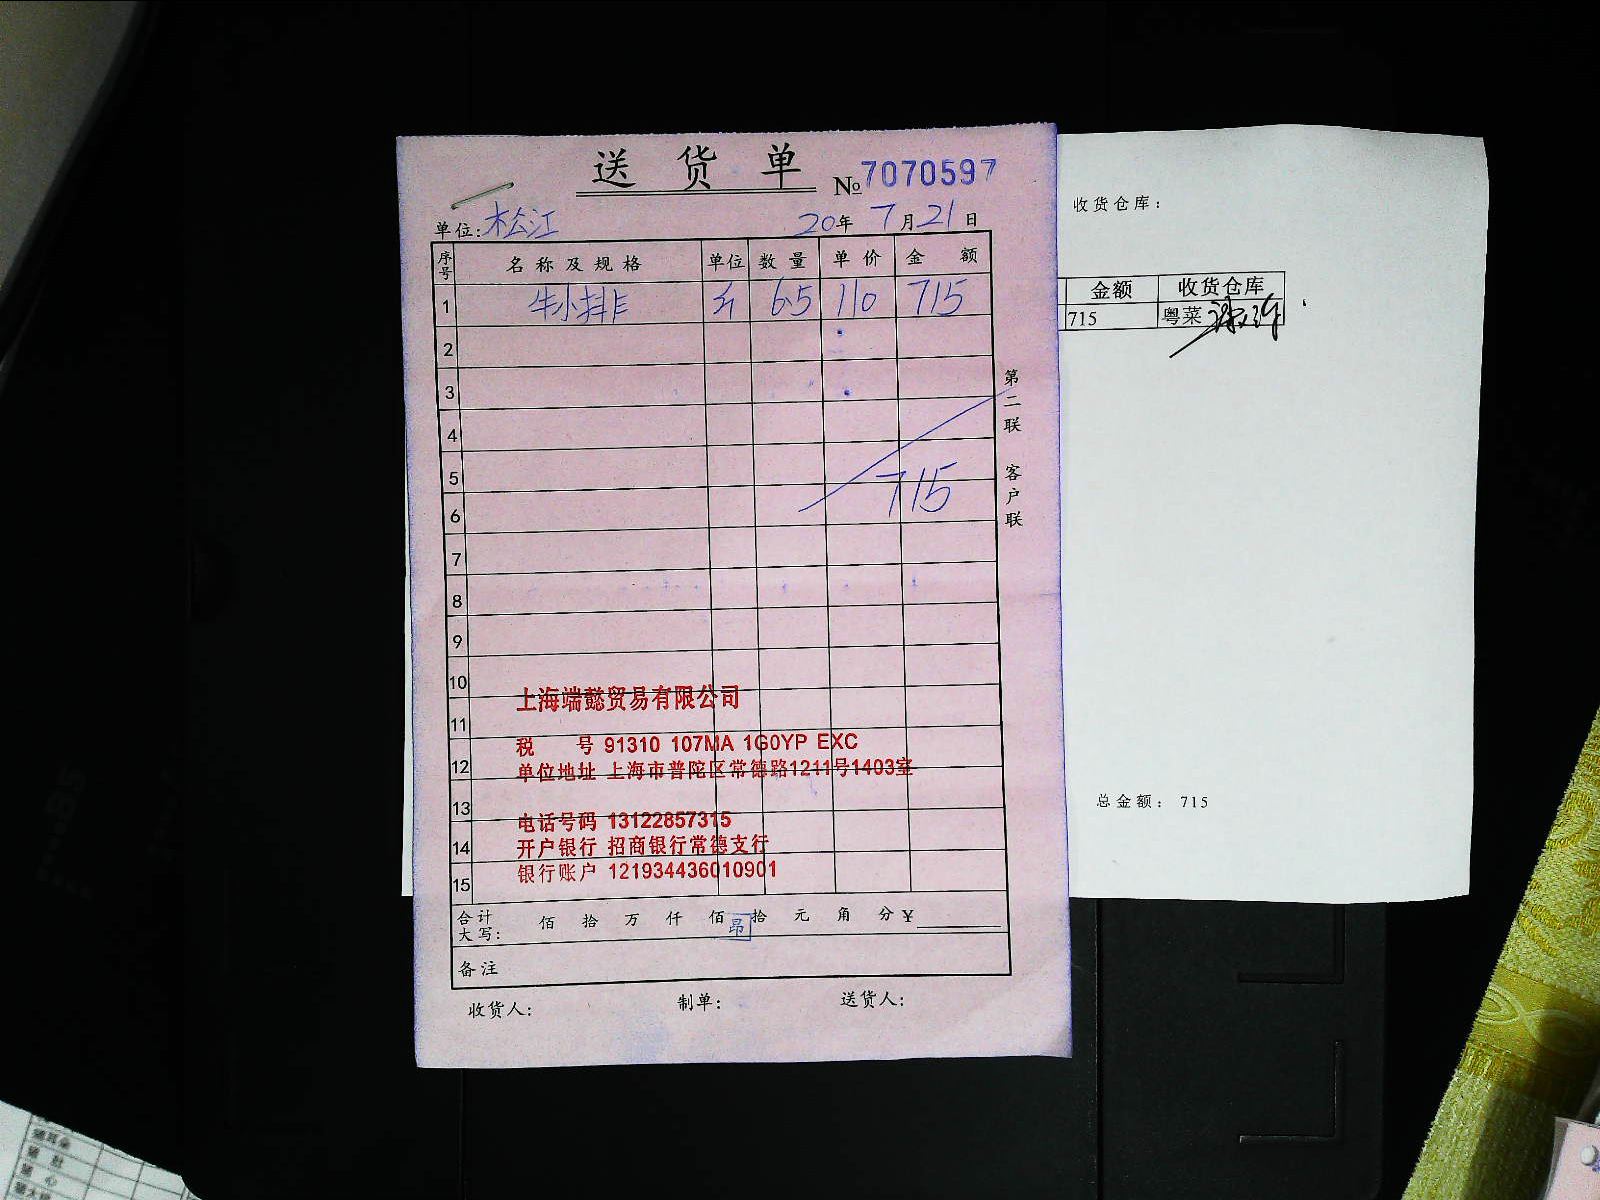 送货单
№7070597
单位:松江 20年7月21日
序号 名称及规格 单位 数量 单价 金额
1 牛小排 斤 6.5 110 715
2
3
4
5
6 715
7
8
9
10
11
12
13
14
15
第二联 客户联
上海端懿贸易有限公司
税 号 91310 107MA 1G0YP EXC
单位地址 上海市普陀区常德路1211号1403室
电话号码 13122857315
开户银行 招商银行常德支行
银行账户 121934436010901
合计大写: 佰 拾 万 仟 佰 拾 元 角 分 ¥
昂
备注
收货人: 制单: 送货人:
收货仓库:
金额 收货仓库
715 粤菜
总金额: 715